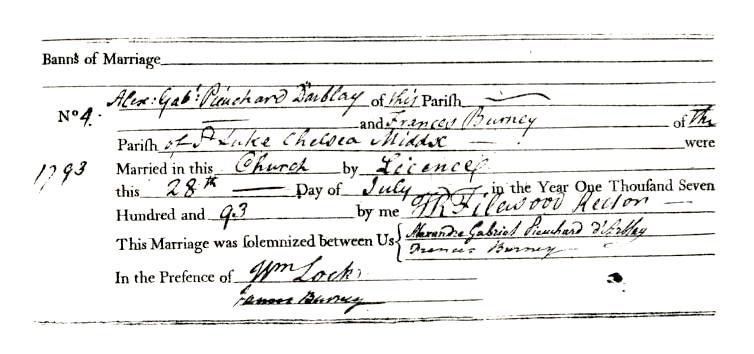 Banns of Marriage
No 4. Alex: Gabl. Pieuchard Darblay of this Parish
and Frances Burney of the
Parish of St Luke Chelsea Middx were
1793 Married in this Church by Licence
this 28th Day of July in the Year One Thousand Seven
Hundred and 93 by me Filewood Rector
This Marriage was solemnized between Us { Alexandre Gabriel Pieuchard d'Arblay
Frances Burney
In the Presence of Wm Lock
James Burney